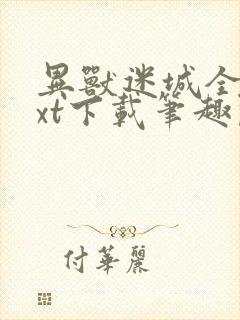 異獸迷城全
xt下載筆趣
付華麗